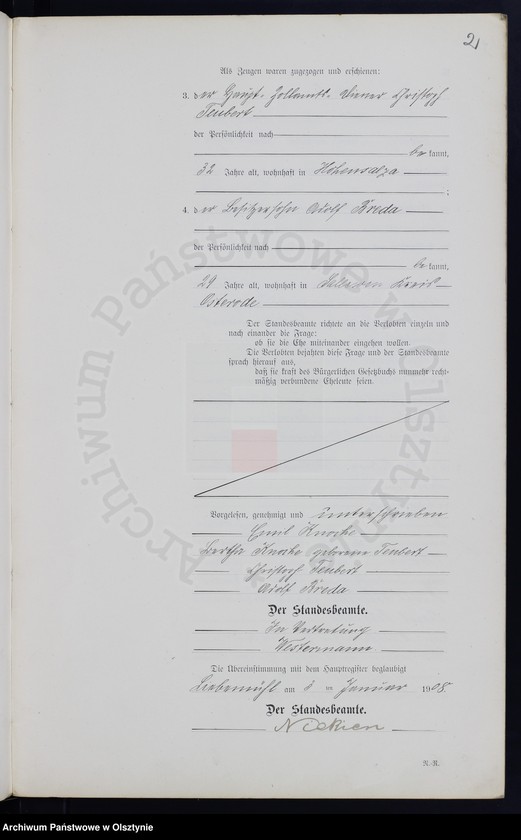 2
Als Zeugen waren zugezogen und erschienen:
3. der Haupt-Zollamts-Diener Christoph
Teubert
der Persönlichkeit nach
be kannt,
32 Jahre alt, wohnhaft in Hohensalza
;
4. der Besitzersohn Adolf Kreda
der Persönlichkeit nach
be kannt,
29 Jahre alt, wohnhaft in Kreis
Osterode
Der Standesbeamte richtete an die Verlobten einzeln und
nach einander die Frage:
ob sie die Ehe miteinander eingehen wollen.
Die Verlobten bejahten diese Frage und der Standesbeamte
sprach hierauf aus,
daß sie kraft des Bürgerlichen Gesetzbuchs nunmehr recht-
mäßig verbundene Eheleute seien.
Vorgelesen, genehmigt und unterschrieben
Emil Knoche
Bertha Knoche geborene Teubert
Christoph Teubert
Adolf Kreda
Der Standesbeamte.
In Vertretung
Westermann
Die Übereinstimmung mit dem Hauptregister beglaubigt
Liebemühl am 3 ten Januar 1908.
Der Standesbeamte.
R.-R.
Archiwum Państwowe w Olsztynie
Archiwum Państwowe w Olsztynie
Archiwum Państwowe w Olsztynie